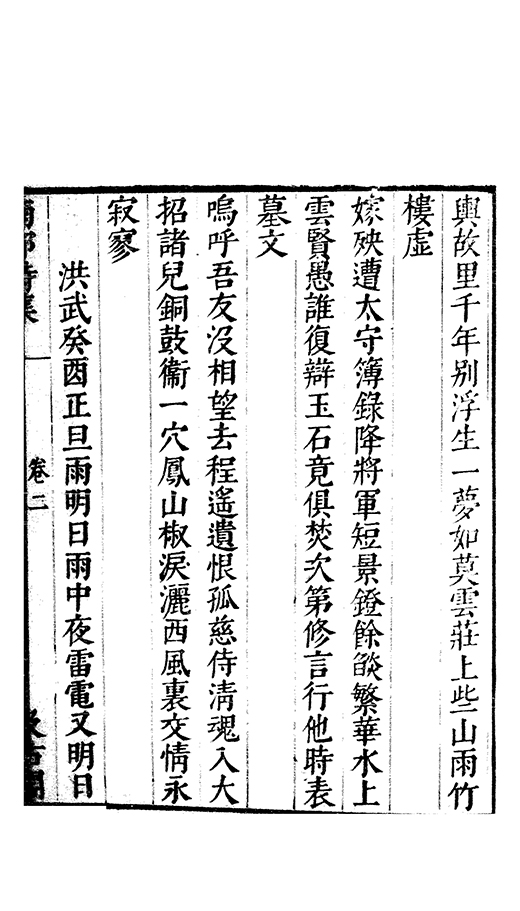 輿故里千年别浮生一夢如莫雲莊上些山雨竹
樓虚
嫁殃遭太守簿錄降將軍短景鐙餘燄繁華水上
雲賢愚誰復辯玉石竟俱焚次第修言行他時表
墓文
嗚呼吾友没相望去程遙遺恨孤慈侍清魂入大
招諸兒銅鼓衞一穴鳳山椒淚灑西風裏交情永
寂寥
洪武癸酉正旦雨明日雨中夜雷電又明日
卷二